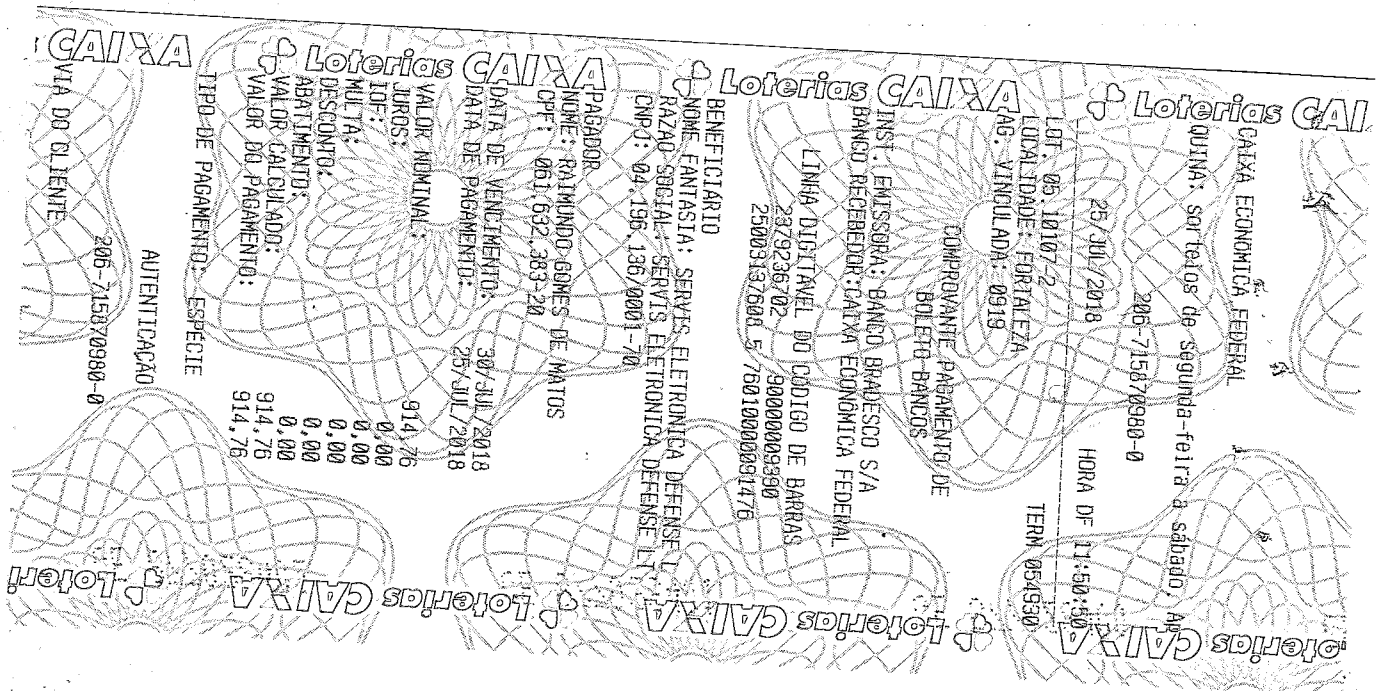 Loterias CAIXA
CAIXA ECONÔMICA FEDERAL
QUINA: sorteios de segunda-feira a sábado. Ap
206-715870980-0
25/JUL/2018 HORA DF 11:50:50
LOT. 05.10107-2 TERM 054930
LOCALIDADE: FORTALEZA
AG. VINCULADA: 0919
COMPROVANTE PAGAMENTO DE
BOLETO BANCOS
INST. EMISSORA: BANCO BRADESCO S/A
BANCO RECEBEDOR:CAIXA ECONÔMICA FEDERAL
LINHA DIGITAVEL DO CODIGO DE BARRAS
2379236702 90000009390
25003137608 5 76010000091476
BENEFICIÁRIO
NOME FANTASIA: SERVIS ELETRONICA DEFENSE L
RAZAO SOCIAL: SERVIS ELETRONICA DEFENSE LT
CNPJ: 04.196.136/0001-70
PAGADOR
NOME: RAIMUNDO GOMES DE MATOS
CPF: 061.632.383-20
DATA DE VENCIMENTO: 30/JUL/2018
DATA DE PAGAMENTO: 25/JUL/2018
VALOR NOMINAL: 914,76
JUROS: 0,00
IOF: 0,00
MULTA: 0,00
DESCONTO: 0,00
ABATIMENTO: 0,00
VALOR CALCULADO: 914,76
VALOR DO PAGAMENTO: 914,76
TIPO DE PAGAMENTO: ESPÉCIE
AUTENTICAÇÃO
206-715870980-0
VIA DO CLIENTE
Loterias CAIXA
Loterias CAIXA
CAIXA
Loterias CAIXA
Loterias CAIXA
Loteri